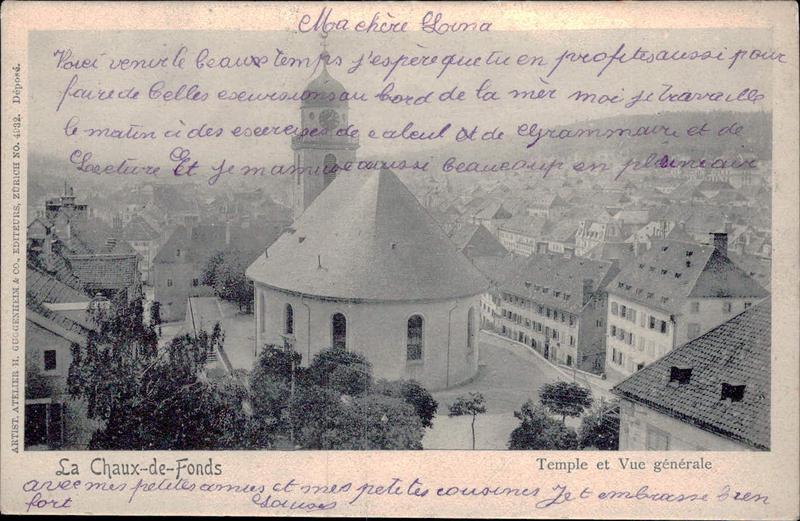 Ma chère Lorna
Voici venir le beaux temps j'espère que tu en profites aussi pour
faire de belles excursions au bord de la mèr moi je travaille
le matin à des exercises de calcul et de Grammaire et de
Lecture Et je m'amuse aussi beaucoup en plein air
ARTIST. ATELIER H. GUGGENHEIM & CO., EDITEURS, ZÜRICH NO. 4932. Déposé.
La Chaux-de-Fonds
Temple et Vue générale
avec mes petites amies et mes petites cousines Je t embrasse bien
fort